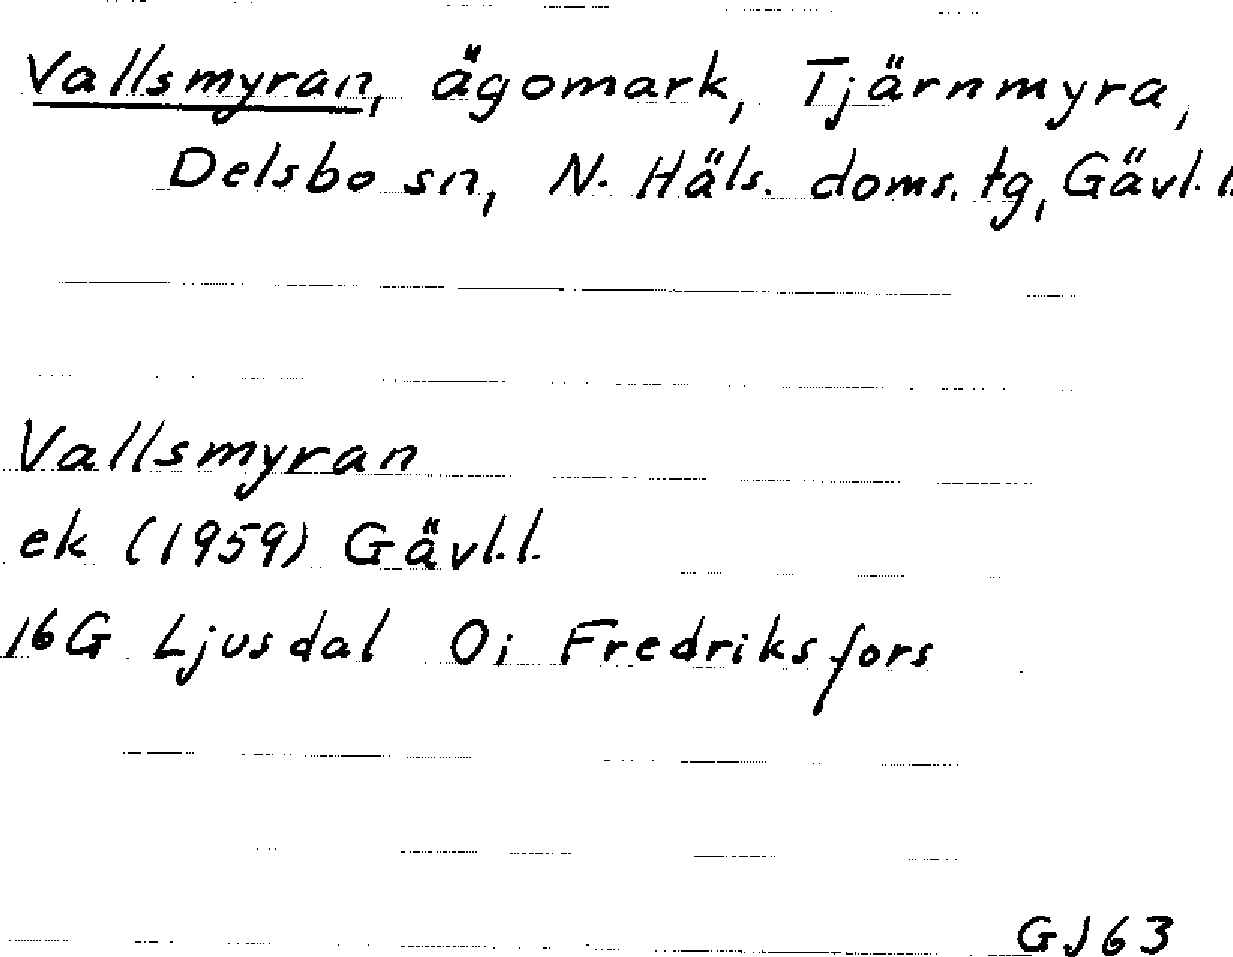 Vallsmyran, ägomark, Tjärnmyra,
Delsbo sn, N. Häls. doms. tg, Gävl. l.
Vallsmyran
ek (1959) Gävl. l.
16G Ljusdal 0i Fredriksfors
GJ63